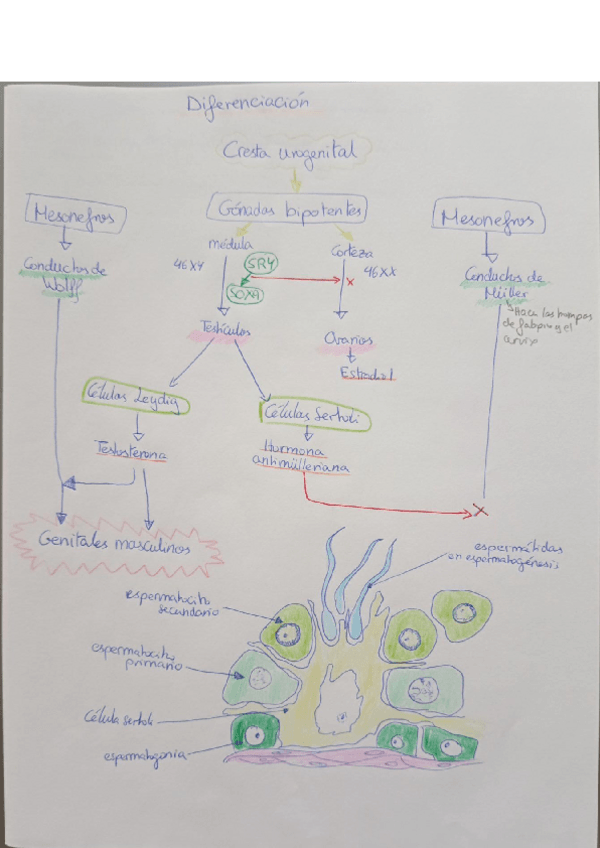 Diferenciación
Cresta urogenital
Mesonefros
Gónadas bipotentes
Mesonefros
médula
Corteza
46XY
SRY
46XX
SOX9
Conductos de
Wolff
Conductos de
Müller
Hace las trompas
de falopio y el
cervix
Testículos
Ovarios
Estradiol
Células Leydig
Células Sertoli
Testosterona
Hormona
antimülleriana
Genitales masculinos
espermátidas
en espermatogénesis
espermatocito
secundario
espermatocito
primario
Célula sertoli
espermatogonia